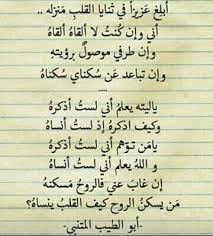 أبلغ عَزيزاً في ثنايا القلبِ مَنزله ..
أني وإن كنتُ لا ألقاهُ ألقاهُ
وإن طرفي موصولٌ برؤيتهِ
وإن تباعد عن سُكناي سُكناهُ
....
ياليته يعلمُ أني لستُ أذكرهُ
وكيف أذكرهُ إذ لستُ أنساهُ
يامَن توهّم أني لستُ أذكرهُ
و اللهُ يعلم أني لستُ أنساهُ
إن غابَ عني فالروحُ مَسكنهُ
مَن يسكنُ الروح كيف القلبُ ينساهُ؟
-أبو الطيب المتنبي-